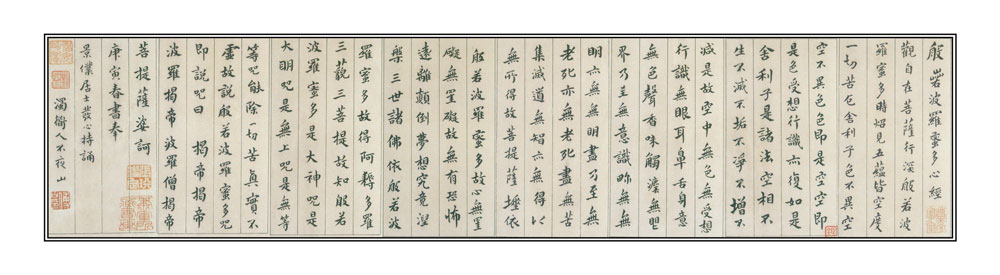 般若波羅蜜多心經
觀自在菩薩行深般若波
羅蜜多時照見五蘊皆空度
一切苦厄舍利子色不異空
空不異色色即是空空即
是色受想行識亦復如是
舍利子是諸法空相不
生不滅不垢不淨不增不
減是故空中無色無受想
行識無眼耳鼻舌身意
無色聲香味觸法無眼
界乃至無意識界無無
明亦無無明盡乃至無
老死亦無老死盡無苦
集滅道無智亦無得以
無所得故菩提薩埵依
般若波羅蜜多故心無罣
礙無罣礙故無有恐怖
遠離顛倒夢想究竟涅
槃三世諸佛依般若波
羅蜜多故得阿耨多羅
三藐三菩提故知般若
波羅蜜多是大神咒是
大明咒是無上咒是無等
等咒能除一切苦真實不
虛故說般若波羅蜜多咒
即說咒曰 揭帝揭帝
波羅揭帝 波羅僧揭帝
菩提薩婆訶
庚寅春書奉
居士發心持誦